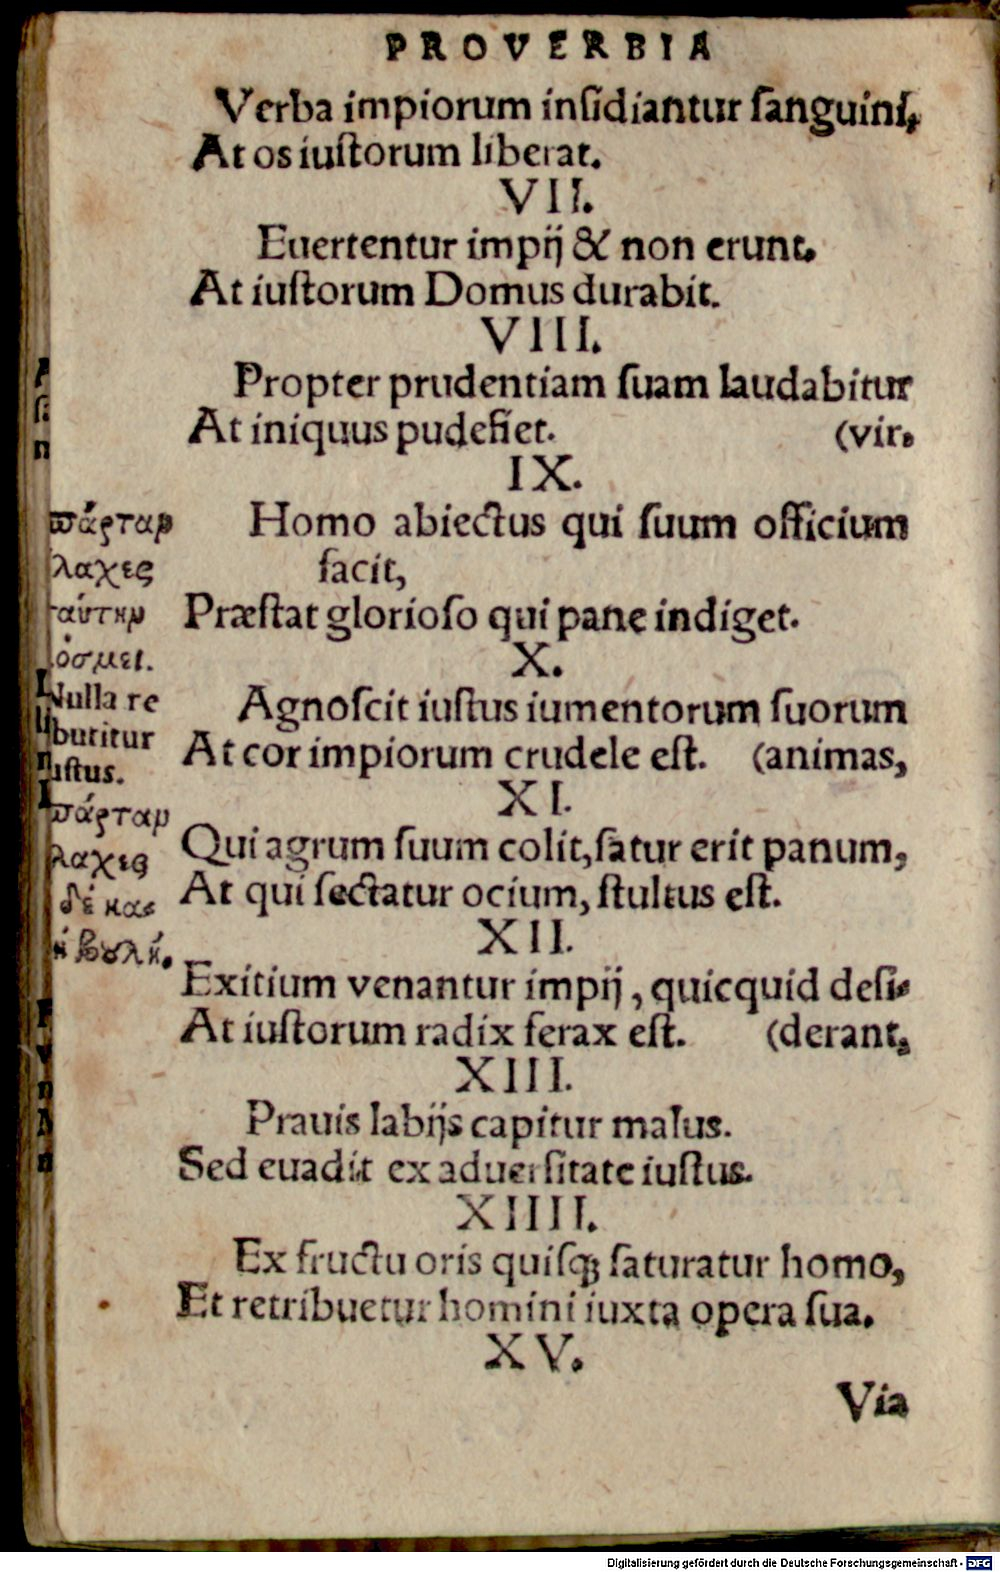 PROVERBIA
Verba impiorum inſidiantur ſanguini,
At os iuſtorum liberat.
VII.
Euertentur impij & non erunt.
At iuſtorum Domus durabit.
VIII.
Propter prudentiam ſuam laudabitur
At iniquus pudefiet. (vir.
IX.
Homo abiectus qui ſuum officium
facit,
Præſtat glorioſo qui pane indiget.
X.
Agnoſcit iuſtus iumentorum ſuorum
At cor impiorum crudele eſt. (animas,
XI.
Qui agrum ſuum colit, ſatur erit panum,
At qui ſectatur ocium, ſtultus eſt.
XII.
Exitium venantur impij, quicquid deſi-
At iuſtorum radix ferax eſt. (derant.
XIII.
Prauis labijs capitur malus.
Sed euadit ex aduerſitate iuſtus.
XIIII.
Ex fructu oris quiſq; ſaturatur homo,
Et retribuetur homini iuxta opera ſua.
XV.
Via
πάρταρ
λαχες
όσμει.
Nulla re
butitur
uſtus.
πάρταρ
λαχες
δέ και
βουλή.
Digitalisierung gefördert durch die Deutsche Forschungsgemeinschaft - DFG